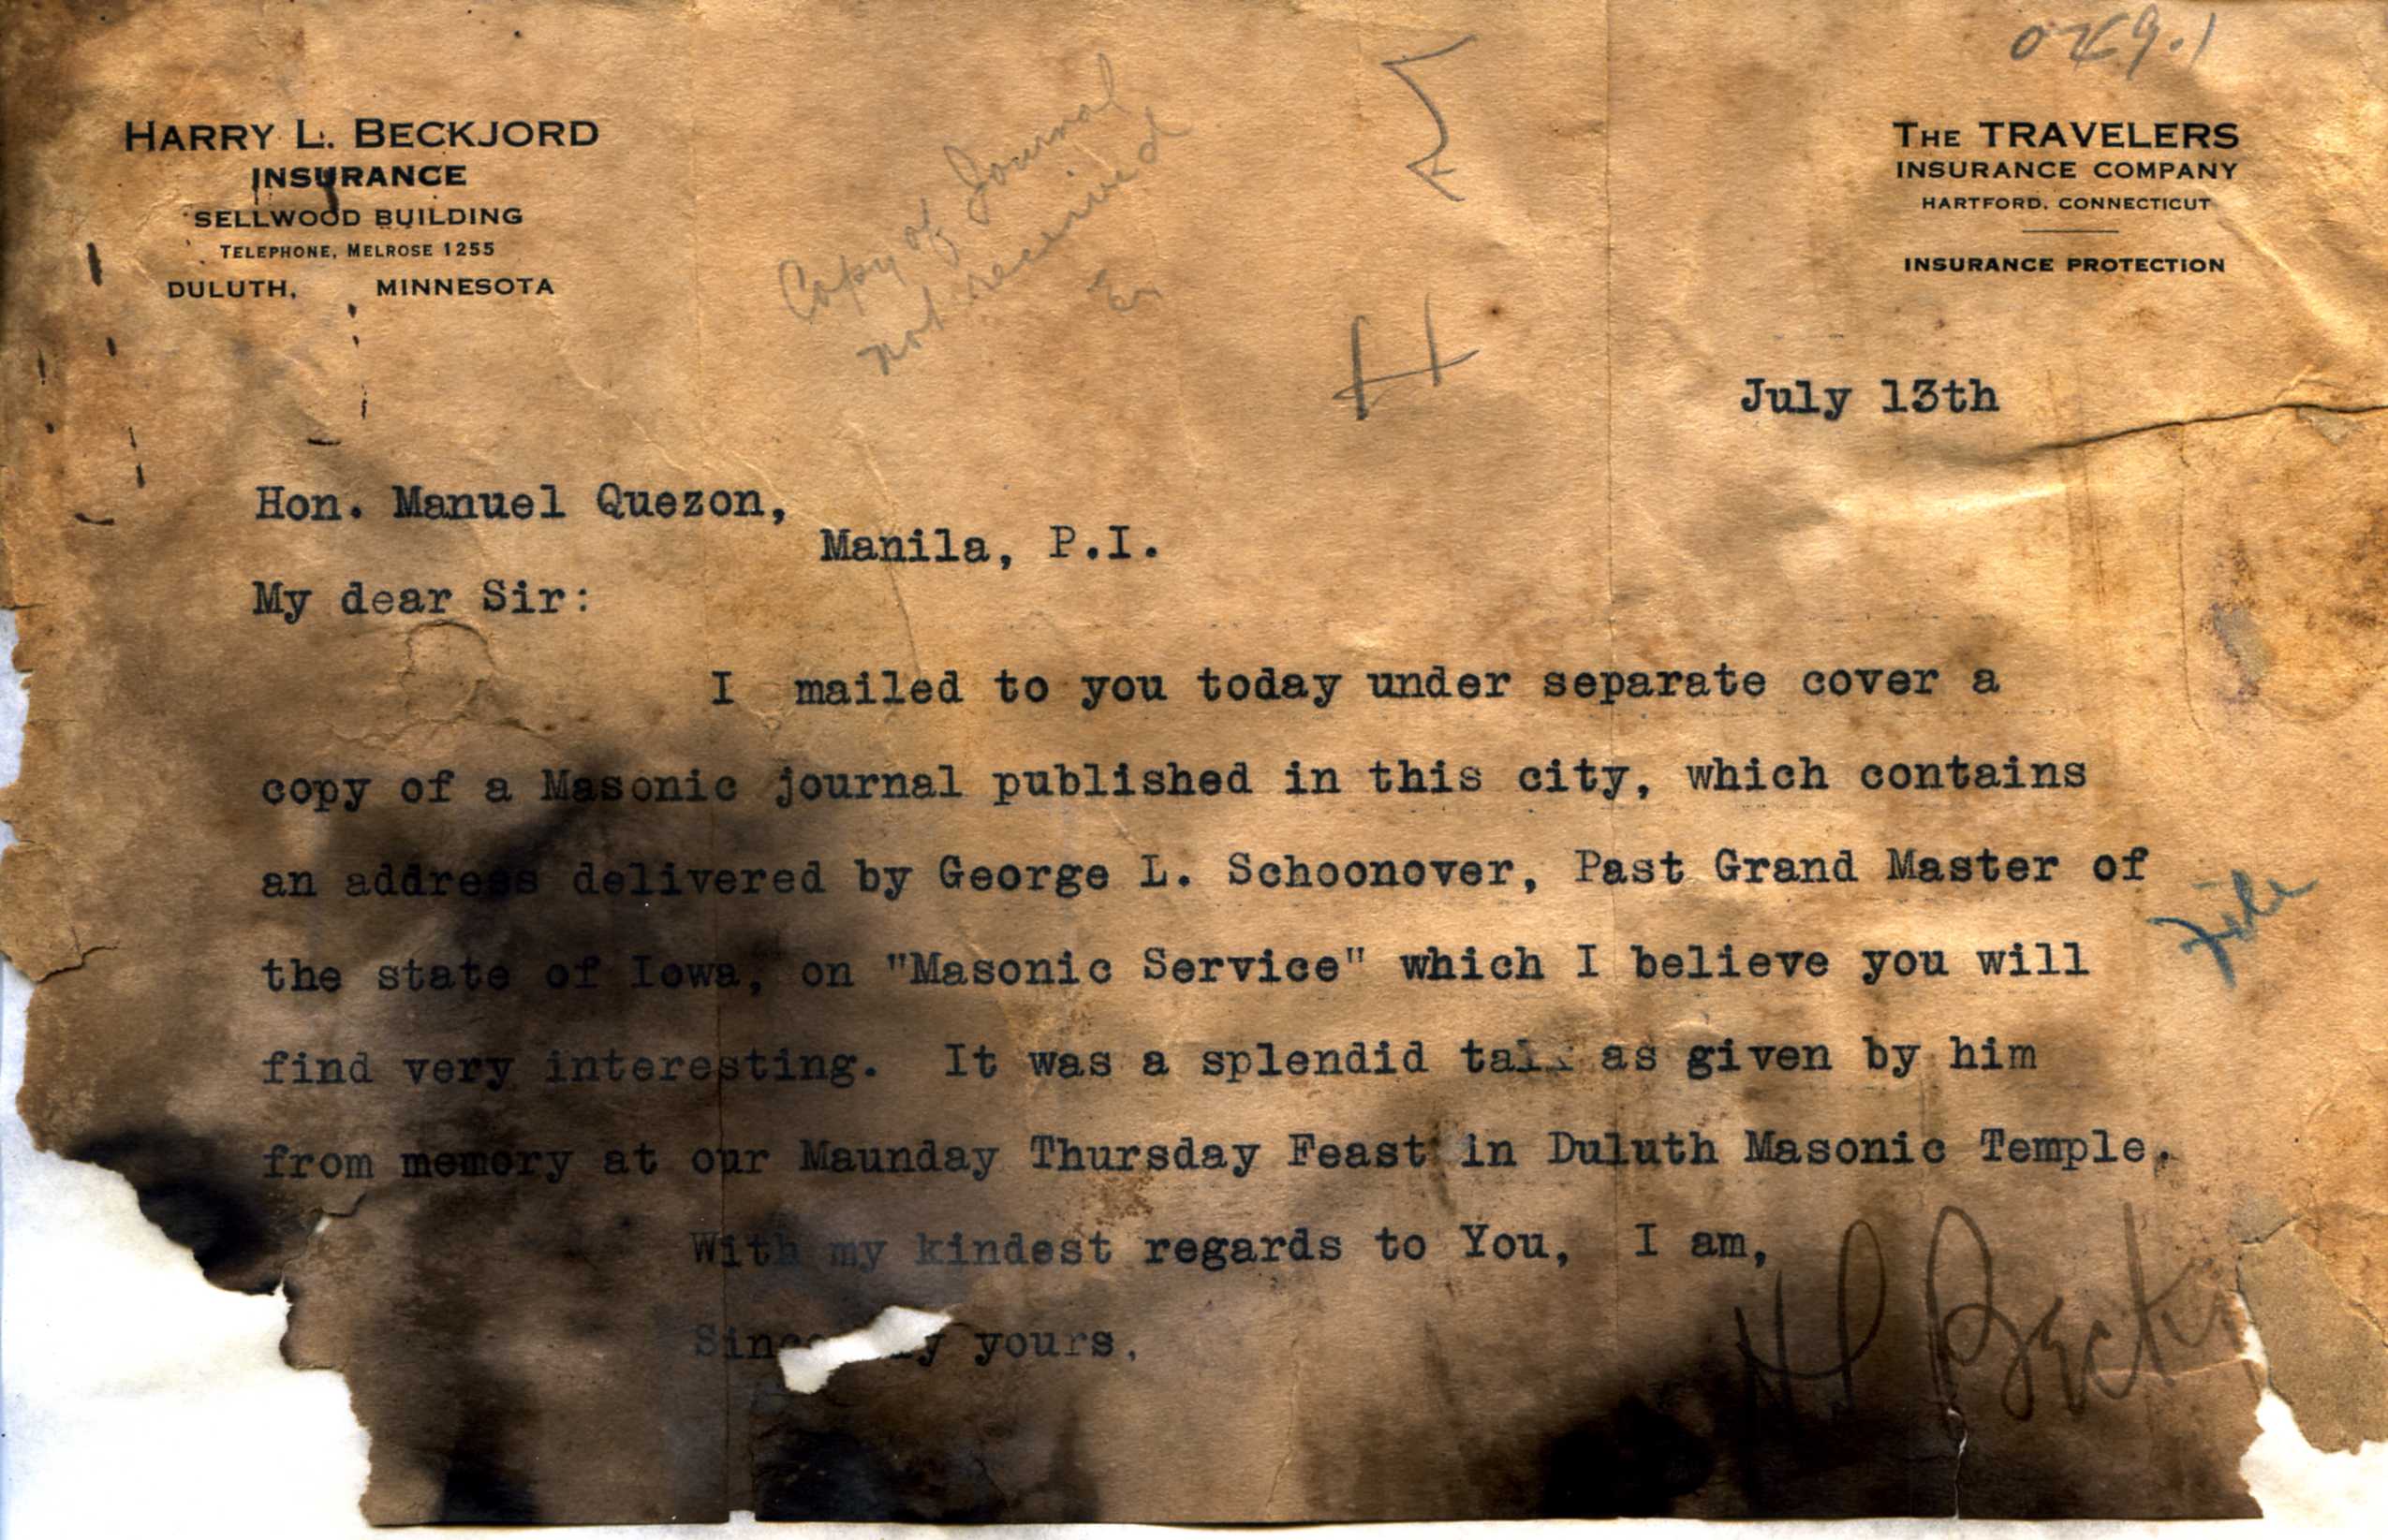 HARRY L. BECKJORD
INSURANCE
SELLWOOD BUILDING
TELEPHONE, MELROSE 1255
DULUTH, MINNESOTA
Copy of Journal
not received
THE TRAVELERS
INSURANCE COMPANY
HARTFORD, CONNECTICUT
INSURANCE PROTECTION
H
July 13th
Hon. Manuel Quezon,
Manila, P.I.
My dear Sir:
I mailed to you today under separate cover a
copy of a Masonic journal published in this city, which contains
an address delivered by George L. Schoonover, Past Grand Master of
File
the state of Iowa, on "Masonic Service" which I believe you will
find very interesting. It was a splendid talk as given by him
from memory at our Maunday Thursday Feast in Duluth Masonic Temple.
With my kindest regards to You, I am,
yours,